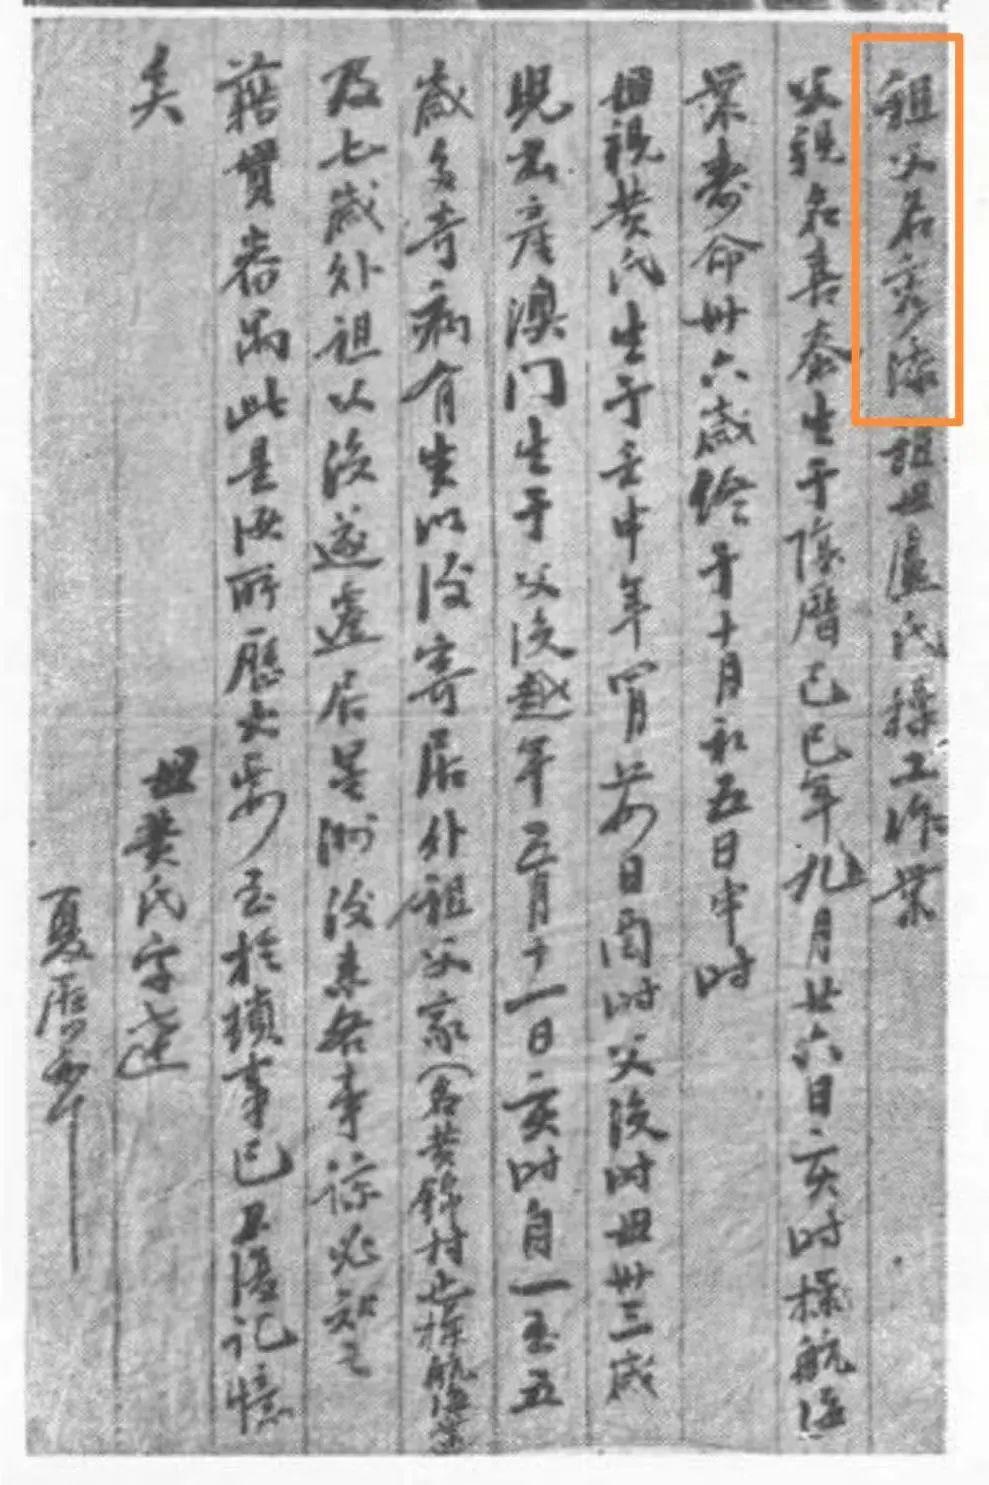 祖父名 添祖母盧氏操工作業
父親名喜泰生于陰曆己巳年九月廿六日亥时操航海
業壽命卅六歲終于十月初五日申时
母親黄氏生于壬申年四月 日酉时父殁时母卅三歲
兒出産澳门生于父殁越年五月十一日亥时自一至五
歲多奇病有生以後寄居外祖父家(名黄錦村也操航海業
及七歲外祖以殁遂遷居星洲後來各事諒必知之
藉貫番禺此是汝所歷大畧至於瑣事已不復記憶
矣
母黄氏字
夏曆 年